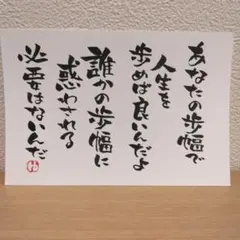 あなたの歩幅で
人生を
歩めば良いんだよ
誰かの歩幅に
惑わされる
必要はないんだ